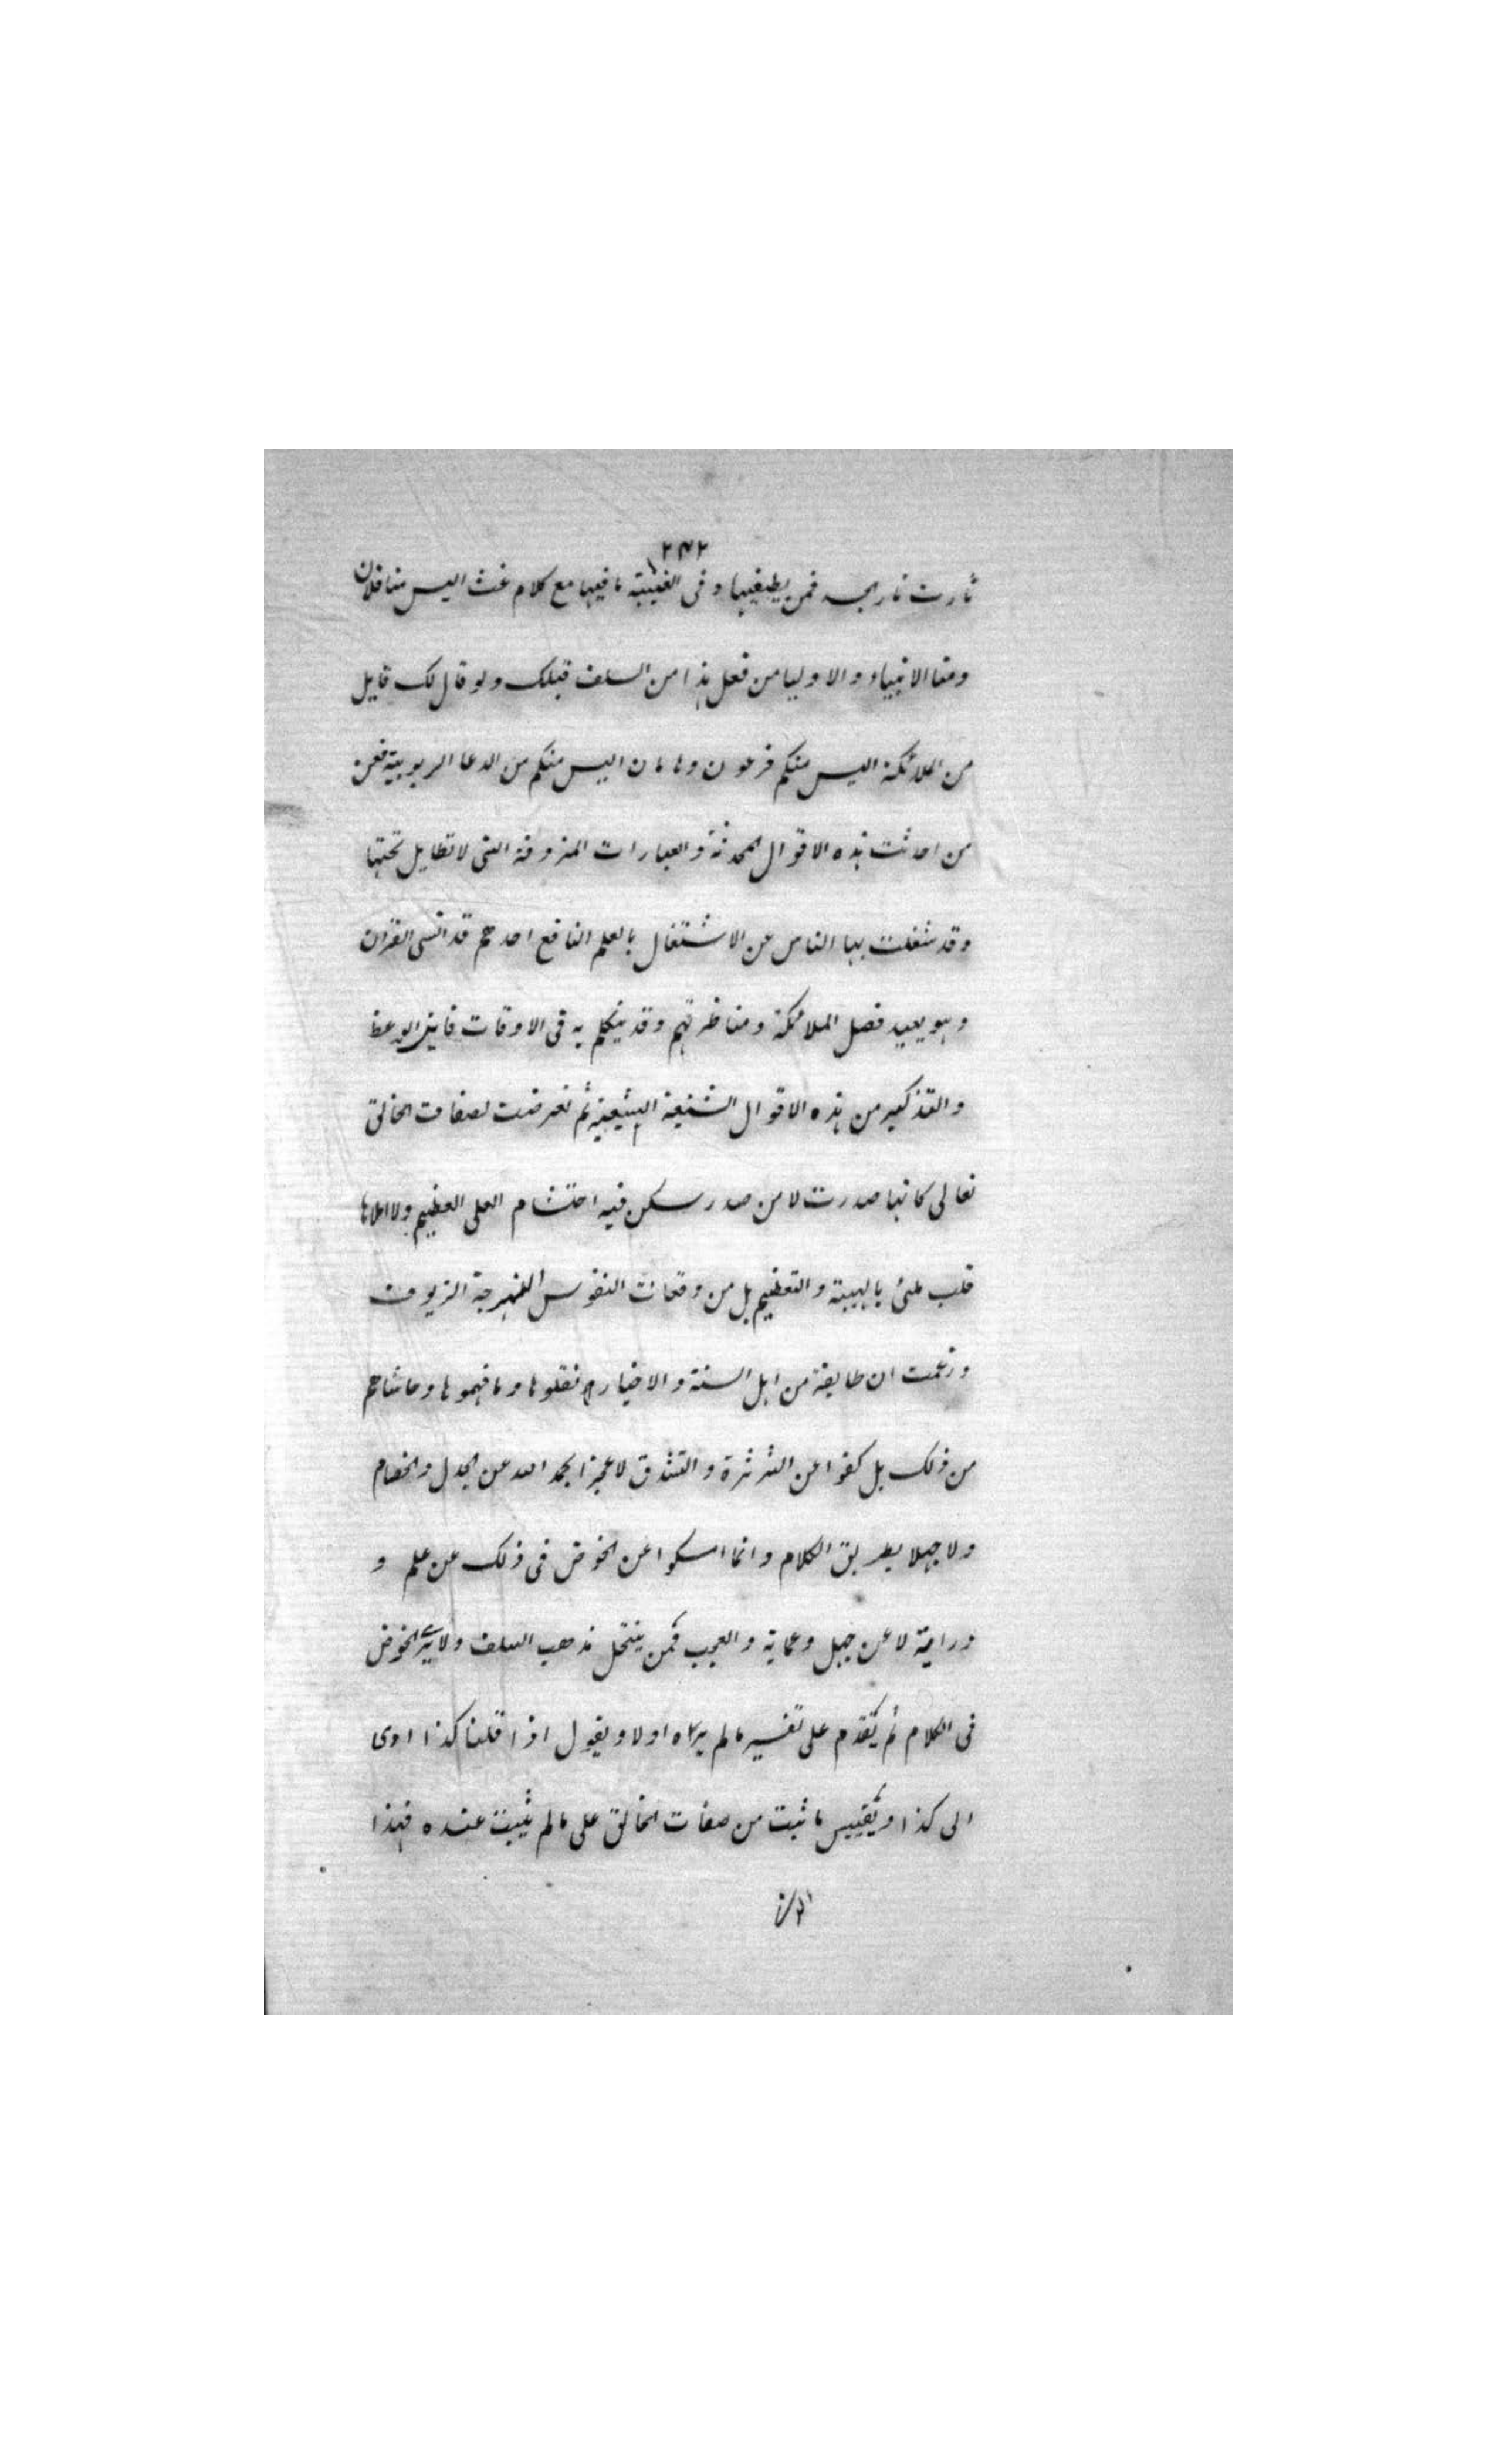 ٢٤٢
ثارت نار بحد فمن يطيفيها وفى الغيبة ما فيها مع كلام غث اليس منا فلان
ومنا الانبياء والاوليا من فعل هذا من السلف قبلك ولو قال لك قايل
من الملائكة اليس منكم فرعون وهامان اليس منكم من ادعا الربوبية فعن
من احدثت هذه الاقوال المحدثة والعبارات المزوقة التى لا تطايل تحتها
وقد شغلت بها الناس عن الاشتغال بالعلم النافع احدهم قد انسى القران
وهو يعيد فصل الملائكة ومناظرتهم وقد يتكلم به فى الاوقات فاين الوعظ
والتذكير من هذه الاقوال الشنيعة البشيعة ثم تعرضت لصفات الخالق
تعالى كانها صدرت لا من صدر سكن فيه احتشام العلى العظيم ولا املاها
قلب ملئ بالهيبة والتعظيم بل من وقعات النفوس المبهرجة الزيوف
وزعمت ان طايفة من اهل السنة والاخيار نقلوها وما فهموها وحاشاهم
من ذلك بل كفوا عن الثرثرة والتشدق لا عجزا بحمد الله عن الجدل والخصام
ولا جهلا بطريق الكلام وانما امسكوا عن الخوض فى ذلك عن علم و
دراية لا عن جهل وعماية والعجب فمن ينتحل مذهب السلف ولا يرى الخوض
فى الكلام ثم يقدم على تفسير ما لم يراه اولا ويقول اذا قلنا كذا ادى
الى كذا ويقيس ما ثبت من صفات الخالق على ما لم يثبت عنده فهذا